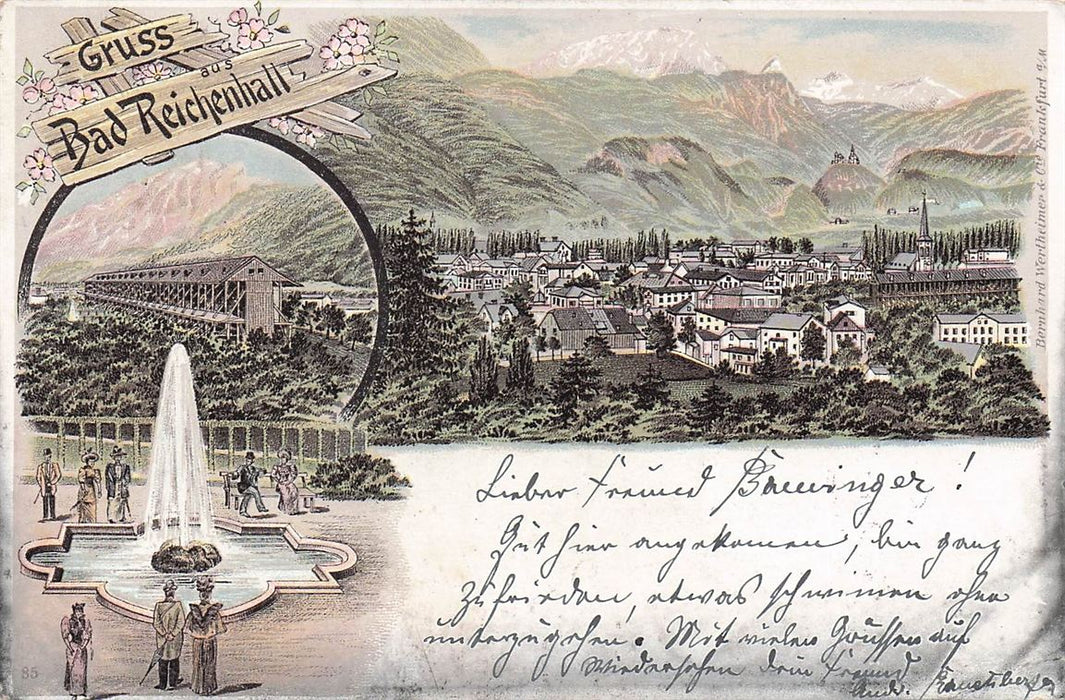 Gruss
aus
Bad Reichenhall
Bernhard Wertheimer & Cie Frankfurt a/M
Lieber Freund
Gut hier angekomen, bin ganz
zufrieden, etwas schwimen ohne
unterzugehen. Mit vielen Grüssen auf
Wiedersehen dein Freund
35